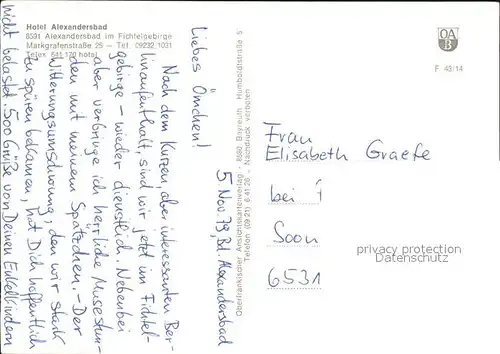 Hotel Alexandersbad
8591 Alexandersbad im Fichtelgebirge
Markgrafenstraße 25 - Tel. 09232 1031
Telex 641 170 hotel
OA
B
F 43/14
Oberfränkischer Ansichtskartenverlag - 8580 Bayreuth - Humboldtstraße 5
Telefon (09 21) 6 41 26 - Nachdruck verboten
5. Nov. 79, Bd. Alexandersbad
Liebes Omchen!
Nach dem kurzen, aber interessanten Ber-
linaufenthalt, sind wir jetzt im Fichtel-
gebirge - wieder dienstlich. Nebenbei
aber verbringe ich herrliche Musestun-
den mit meinem Spätzchen. - Der
Witterungsumschwung, den wir stark
zu spüren bekamen, hat Dich hoffentlich
nicht belastet. 500 Grüße von Deinen Enkelkindern
Frau
Elisabeth Graefe
bei
Soon
6531
privacy protection
Datenschutz